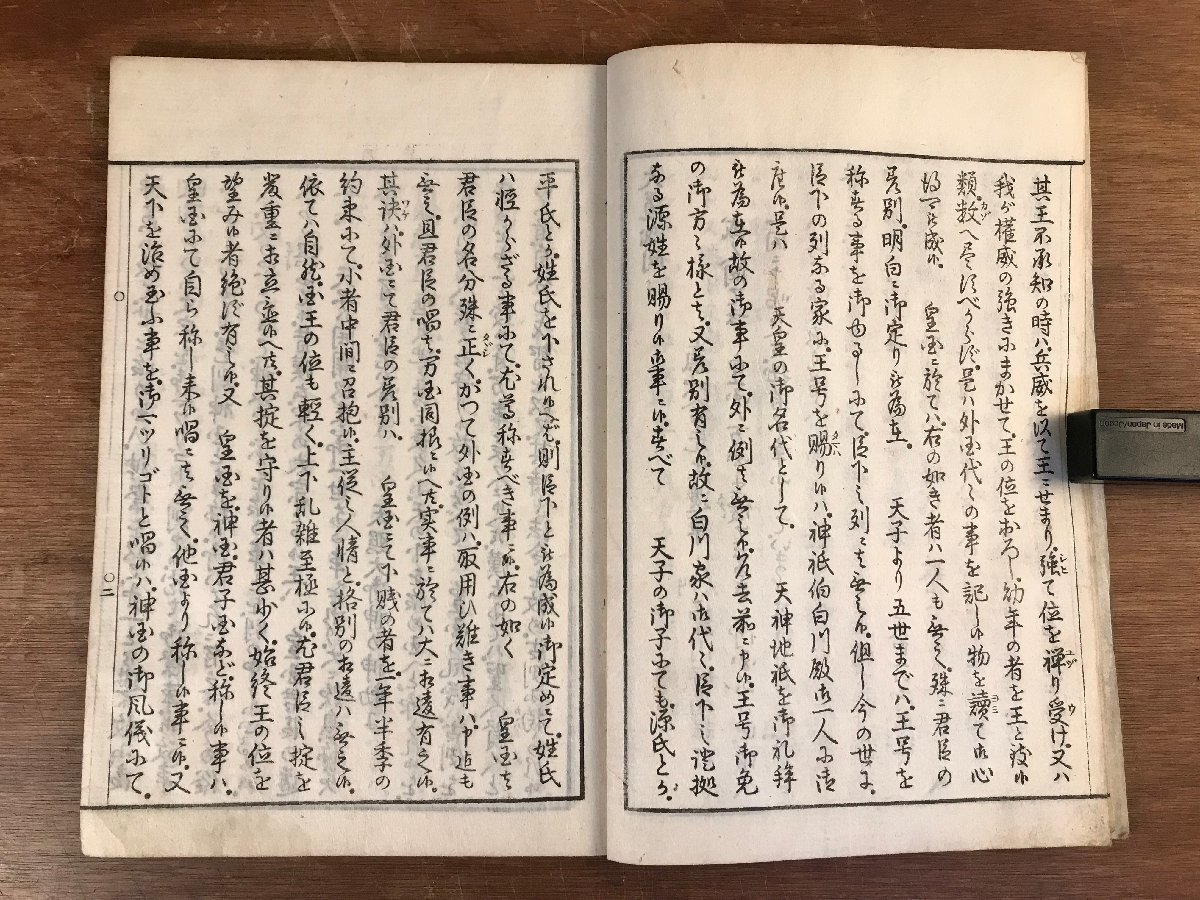 其王不承知の時ハ、兵威を以て王ニせまり、強て位を禅り受け、又ハ
我が権威の強きにまかせて、王の位をおろし、幼年の者を王と致候
類、数へ尽すべからず、是ハ外国代々の事を記し候物を讀て御心
皇国ニ於てハ、右の如き者ハ一人も無く、殊ニ君臣の
差別、明白ニ御定り被為在、 天子より五世までハ、王号を
称する事を御ゆるしにて、臣下之列ニハ無之候、但し今の世に
臣下の列なる家に、王号を賜り候ハ、神祇伯白川殿御一人に御
座候、是ハ 天皇の御名代として、 天神地祇を御礼拝
被為在候故の御事にて、外ニ例ハ無之候、王号御免
の御方々様とハ、又差別有之候、故ニ白川家ハ御代々、臣下之證拠
なる源姓を賜り候御事ニ候、すべて 天子の御子にても、源氏とか、
平氏とか、姓氏を下され候へバ、則臣下と被為成候御定めにて、姓氏
ハ軽からざる事にて、尤尊称すべき事ニ候、右の如く 皇国ハ
君臣の名分殊ニ正くかつて外国の例ハ取用ひ難き事ハ、申迄も
無之、且君臣の唱ハ、万国同様ニ候へ共、実事ニ於てハ大ニ相違有之候、
其訣ハ、外国にて君臣の差別ハ 皇国にて下賤の者を、一年半季の
約束にて、小者中間ニ召抱候、主従之人情と、格別の相違ハ無之候、
依てハ自然、国王の位も軽く、上下乱雑至極に候、尤君臣之掟を
厳重ニ相立置候へ共、其掟を守り候者ハ甚少く、始終王の位を
望み候者絶ず有之候、又 皇国を、神国君子国など、称し候事ハ、
皇国にて自ら称し来候唱ニハ無く、他国より称し候事ニ候、又
天下を治め玉ふ事を、御マツリゴトと唱候ハ、神国の御風儀にて、
○
○二
Made in Japan/Japon